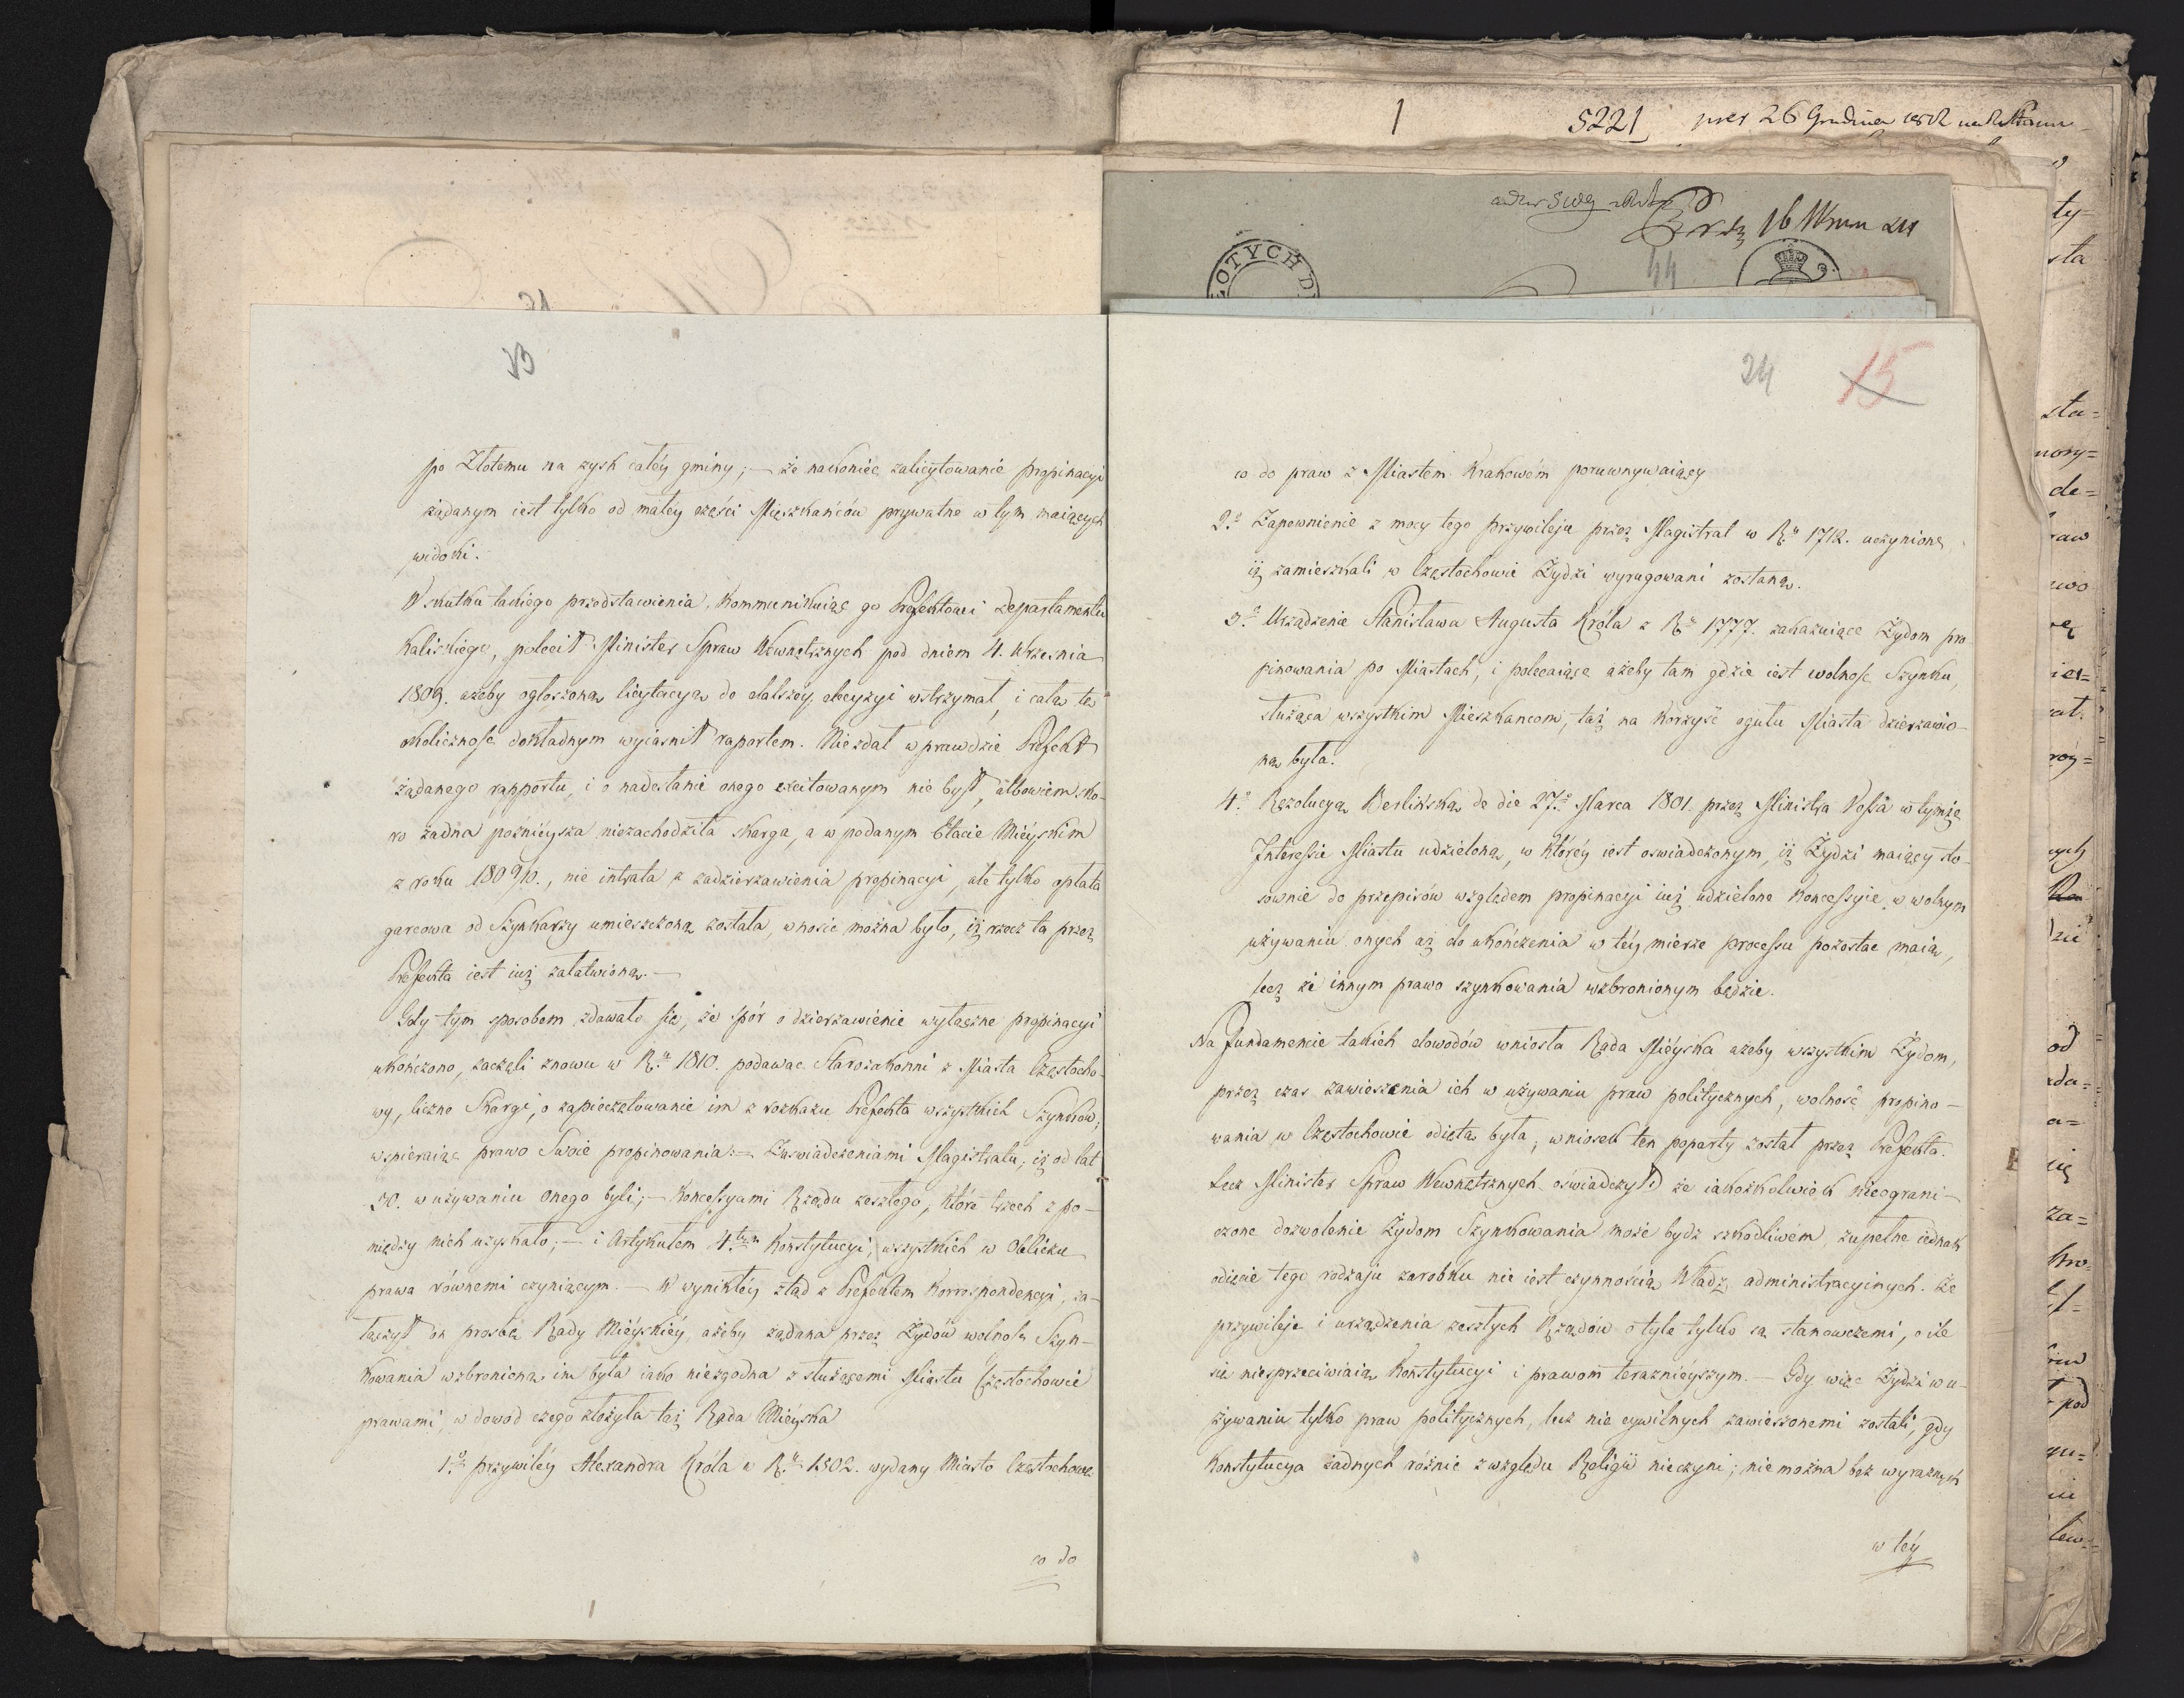 1
5221 26 Grudnia
16
44
OTYCH D
23
po Złotemu na zysk całéy gminy; — że nakoniec zalicytowanie propinacyi
żądanym iest tylko od małey części Mieszkańców prywatne w tym maiących
widoki.
W skutku takiego przedstawienia, kommunikuiąc go Prefektowi Departamentu
Kaliskiego, polecił Minister Spraw Wewnętrznych pod dniem 4. Września
1809. ażeby ogłoszoną licytacyą do dalszey decyzyi wstrzymał, i całą tę
okoliczność dokładnym wyiaśnił raportem. Niezdał wprawdzie Prefekt
żądanego rapportu, i o nadesłanie onego excitowanym nie był, albowiem sko-
ro żadna poźniéysza niezachodziła skarga, a w podanym Etacie Miéyskim
z roku 1809/10., nie intrata z zadzierżawienia propinacyi, ale tylko opłata
garcowa od Szynkarzy umieszczoną została, wnosić można było, iż rzecz ta przez
Prefekta iest iuż załatwioną. —
Gdy tym sposobem zdawało się, że spór o dzierżawienie wyłączne propinacyi
ukończono, zaczęli znowu w R.u 1810. podawać Starozakonni z Miasta Częstocho-
wy, liczne Skargi, o zapieczętowanie im z rozkazu Prefekta wszystkich Szynków;
wspieraiąc prawo Swoie propinowania: — Zaświadczeniami Magistratu, iż od lat
50. w używaniu onego byli; — Koncessyami Rządu zeszłego, które trzech z po-
między nich uzyskało; — i Artykułem 4.tym Konstytucyi, wszystkich w Obliczu
prawa równemi czyniącym. — W wynikłéy ztąd z Prefektem Korrespondencyi, za-
łączył on prosbę Rady Miéyskiéy, ażeby żądana przez Żydów wolność Szyn-
kowania wzbronioną im była iako niezgodna z służącemi Miastu Częstochowie
prawami, w dowód czego złożyła taż Rada Miéyska
1.o przywiléy Alexandra Króla w R.u 1502. wydany Miasto Częstochowę
co do
24 15
co do praw z Miastem Krakowém poruwnywaiący
2.o Zapewnienie z mocy tego przywileju przez Magistrat w R.u 1712. uczynione,
iż zamieszkali w Częstochowie Żydzi wyrugowani zostaną.
3.o Urządzenie Stanisława Augusta Króla z R.u 1777. zakazuiące Żydom pro
pinowania po Miastach, i polecaiące ażeby tam gdzie iest wolność Szynku,
służąca wszystkim Mieszkancom, taż na korzyść ogułu Miasta dzierzawio-
ną była.
4.o Rezolucyą Berlińską de die 27.o Marca 1801. przez Ministra Vossa w tymże
Interessie Miastu udzieloną, w któréy iest oświadczonym, iż Żydzi maiący sto-
sownie do przepisów względem propinacyi iuż udzielone Koncessyie, w wolnym
używaniu onych aż do ukończenia w téy mierze processu pozostać maią,
lecz że innym prawo szynkowania wzbronionym będzie.
Na Fundamencie takich dowodów wniosła Rada Miéyska ażeby wszystkim Żydom,
przez czas zawieszenia ich w używaniu praw politycznych, wolność propino-
wania w Częstochowie odiętą była; wniosek ten poparty został przez Prefekta.
Lecz Minister Spraw Wewnętrznych oświadczył że iakożkolwiek nieograni-
czone dozwolenie Żydom Szynkowania może bydź szkodliwém, zupełne iednak
odięcie tego rodzaju zarobku nie iest czynnością Władz administracyinych. Że
przywileje i urządzenia zeszłych Rządów o tyle tylko są stanowczemi, o ile
się niesprzeciwiaią Konstytucyi i prawom terazniéyszym. — Gdy więc Żydzi w u-
żywaniu tylko praw politycznych, lecz nie cywilnych zawieszonemi zostali, gdy
Konstytucya żadnych różnic z względu Religii nieczyni; nie można bez wyraznych
w téy